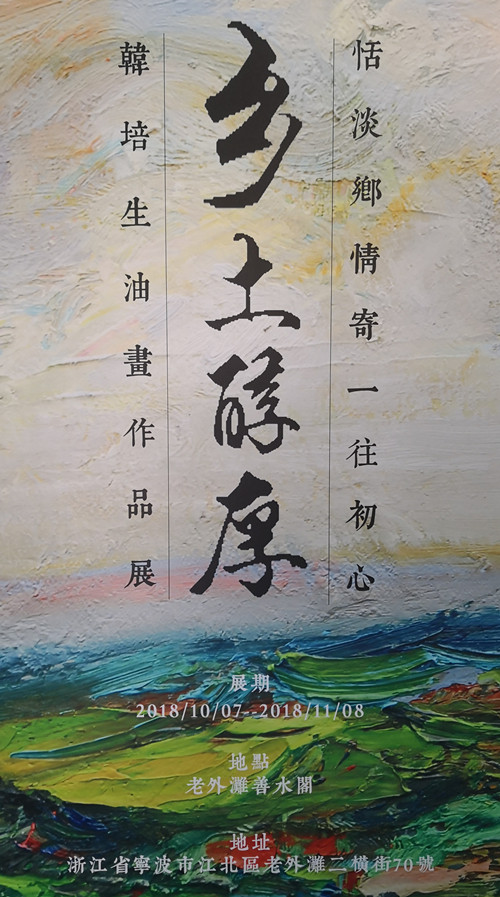 恬淡鄉情寄一往初心
乡土醇厚
韓培生油畫作品展
展期
2018/10/07--2018/11/08
地點
老外灘善水閣
地址
浙江省寧波市江北區老外灘二橫街70號